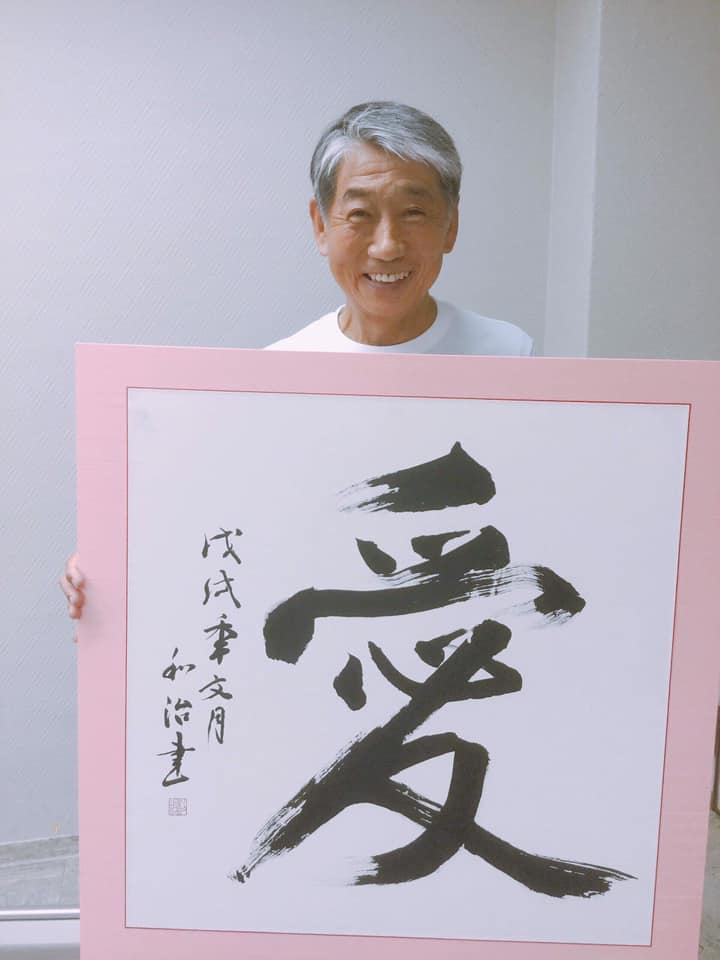 愛
戊戌年文月
和治書